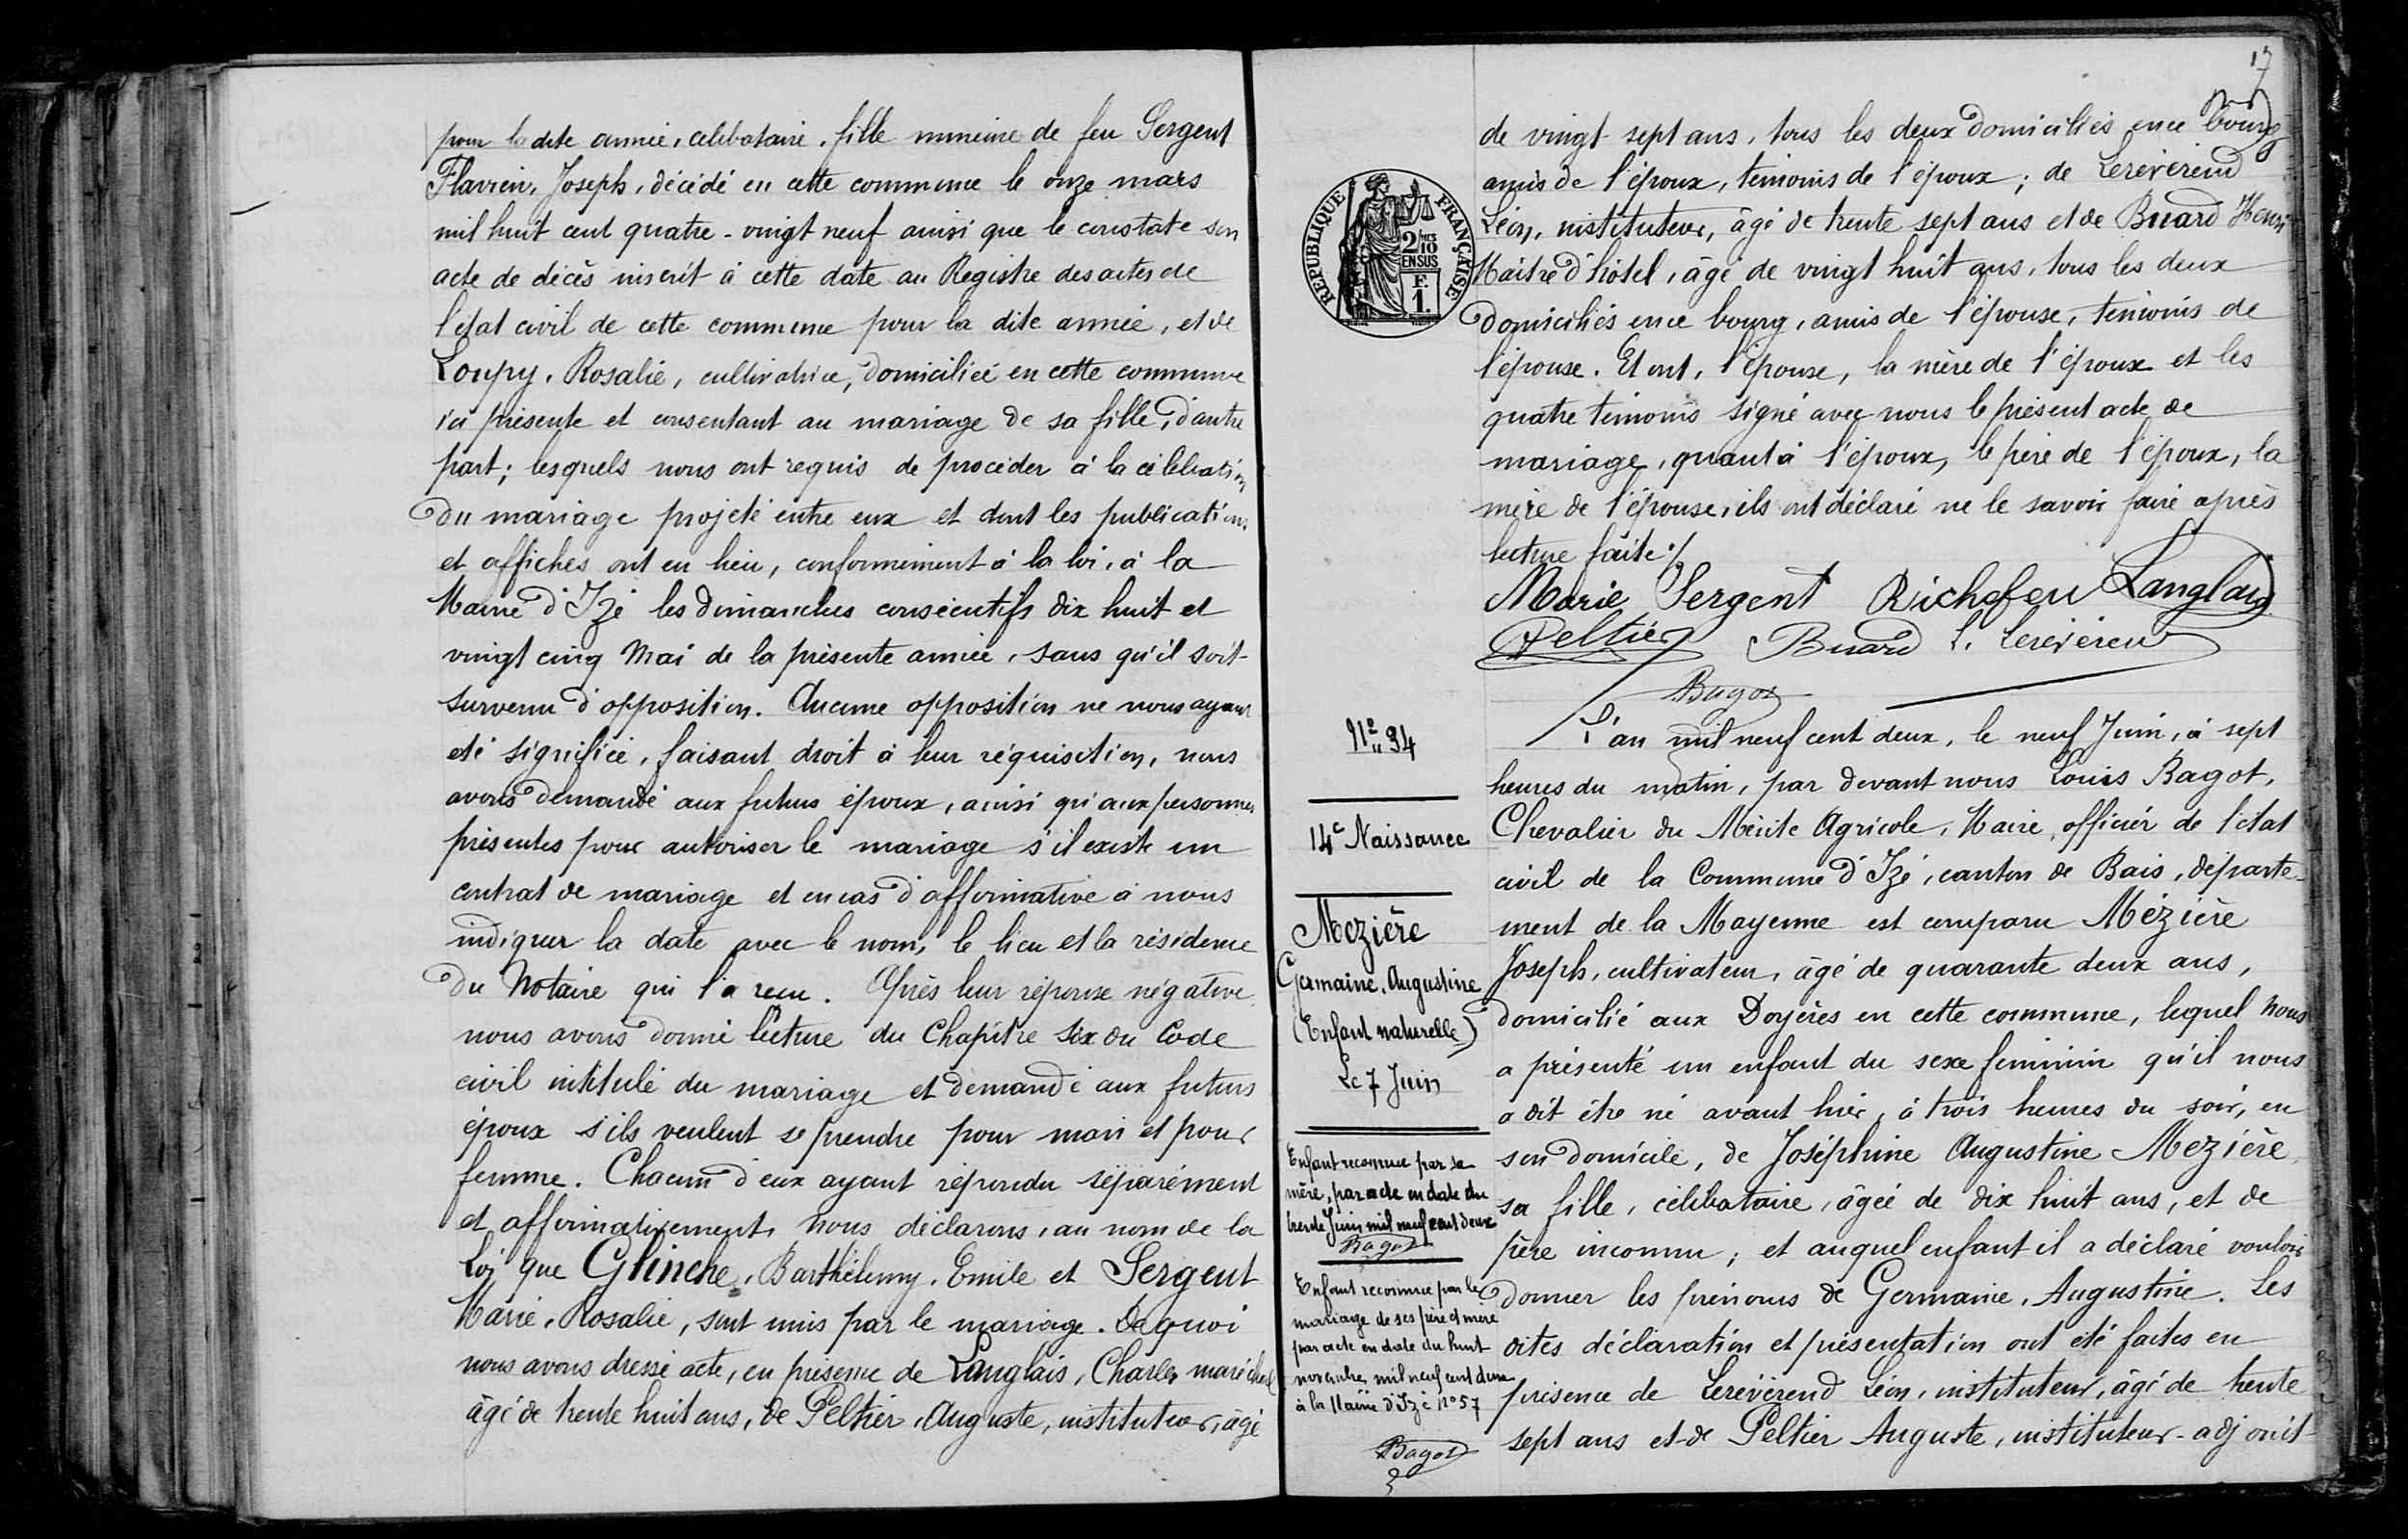 pour la dite année, célibataire, fille mineure de feu Sergent
Flavien, Joseph, décédé en cette commune le onze mars
mil huit cent quatre-vingt neuf ainsi que le constate son
acte de décès inscrit à cette date au Registre des actes de
l'état civil de cette commune pour la dite année, et de
Loupy, Rosalie, cultivatrice, domiciliée en cette commune
ici présente et consentant au mariage de sa fille, d'autre
part; lesquels nous ont requis de procéder à la célébration
du mariage projeté entre eux et dont les publications
et affiches ont eu lieu, conformément à la loi, à la
Mairie d'Izé les dimanches consécutifs dix huit et
vingt cinq Mai de la présente année, sans qu'il soit
survenu d'opposition. Aucune opposition ne nous ayant
été signifiée, faisant droit à leur réquisition, nous
avons demandé aux futurs époux, ainsi qu'aux personnes
présentes pour autoriser le mariage s'il existe un
contrat de mariage et en cas d'affirmative à nous
indiquer la date avec le nom, le lieu et la résidence
du Notaire qui l'a reçu. Après leur réponse négative
nous avons donné lecture du Chapitre six du Code
civil intitulé du mariage et demandé aux futurs
époux s'ils veulent se prendre pour mari et pour
femme. Chacun d'eux ayant répondu séparément
et affirmativement, nous déclarons, au nom de la
Loi que Glinche, Barthélemy, Emile et Sergent
Marie, Rosalie, sont unis par le mariage. De quoi
nous avons dressé acte, en présence de Langlais, Charles, maréchal
âgé de trente huit ans, de Peltier, Auguste, instituteur, âgé
17
de vingt sept ans, tous les deux domiciliés en ce bourg
amis de l'époux, témoins de l'époux; de Lerévérend
Léon, instituteur, âgé de trente sept ans et de Buard Henri
Maître d'hôtel, âgé de vingt huit ans, tous les deux
domiciliés en ce bourg, amis de l'épouse, témoins de
l'épouse. Et ont, l'épouse, la mère de l'époux et les
quatre témoins signé avec nous le présent acte de
mariage, quant à l'époux, le père de l'époux, la
mère de l'épouse, ils ont déclaré ne le savoir faire après
lecture faite ./.
Marie Sergent Richefeu Langlais
Peltier Buard L. Lerévérend
Bagot
RÉPUBLIQUE FRANÇAISE
2/10 EN SUS
F. 1.
N° 34
14e Naissance
Mezière
Germaine, Augustine
(Enfant naturelle)
Le 7 Juin
Enfant reconnue par sa
mère, par acte en date du
trente Juin mil neuf cent deux
Bagot
Enfant reconnue par le
mariage de ses père et mère
par acte en date du huit
novembre mil neuf cent deux
à la Mairie d'Izé N° 57
Bagot
L'an mil neuf cent deux, le neuf Juin, à sept
heures du matin, par devant nous Louis Bagot,
Chevalier du Mérite Agricole, Maire, officier de l'état
civil de la Commune d'Izé, canton de Bais, départe-
ment de la Mayenne est comparu Mézière
Joseph, cultivateur, âgé de quarante deux ans,
domicilié aux Doyères en cette commune, lequel nous
a présenté un enfant du sexe féminin qu'il nous
a dit être né avant hier, à trois heures du soir, en
son domicile, de Joséphine Augustine Mezière,
sa fille, célibataire, âgée de dix huit ans, et de
père inconnu; et auquel enfant il a déclaré vouloir
donner les prénoms de Germaine, Augustine. Les
dites déclaration et présentation ont été faites en
présence de Lerévérend Léon, instituteur, âgé de trente
sept ans et de Peltier Auguste, instituteur-adjoint